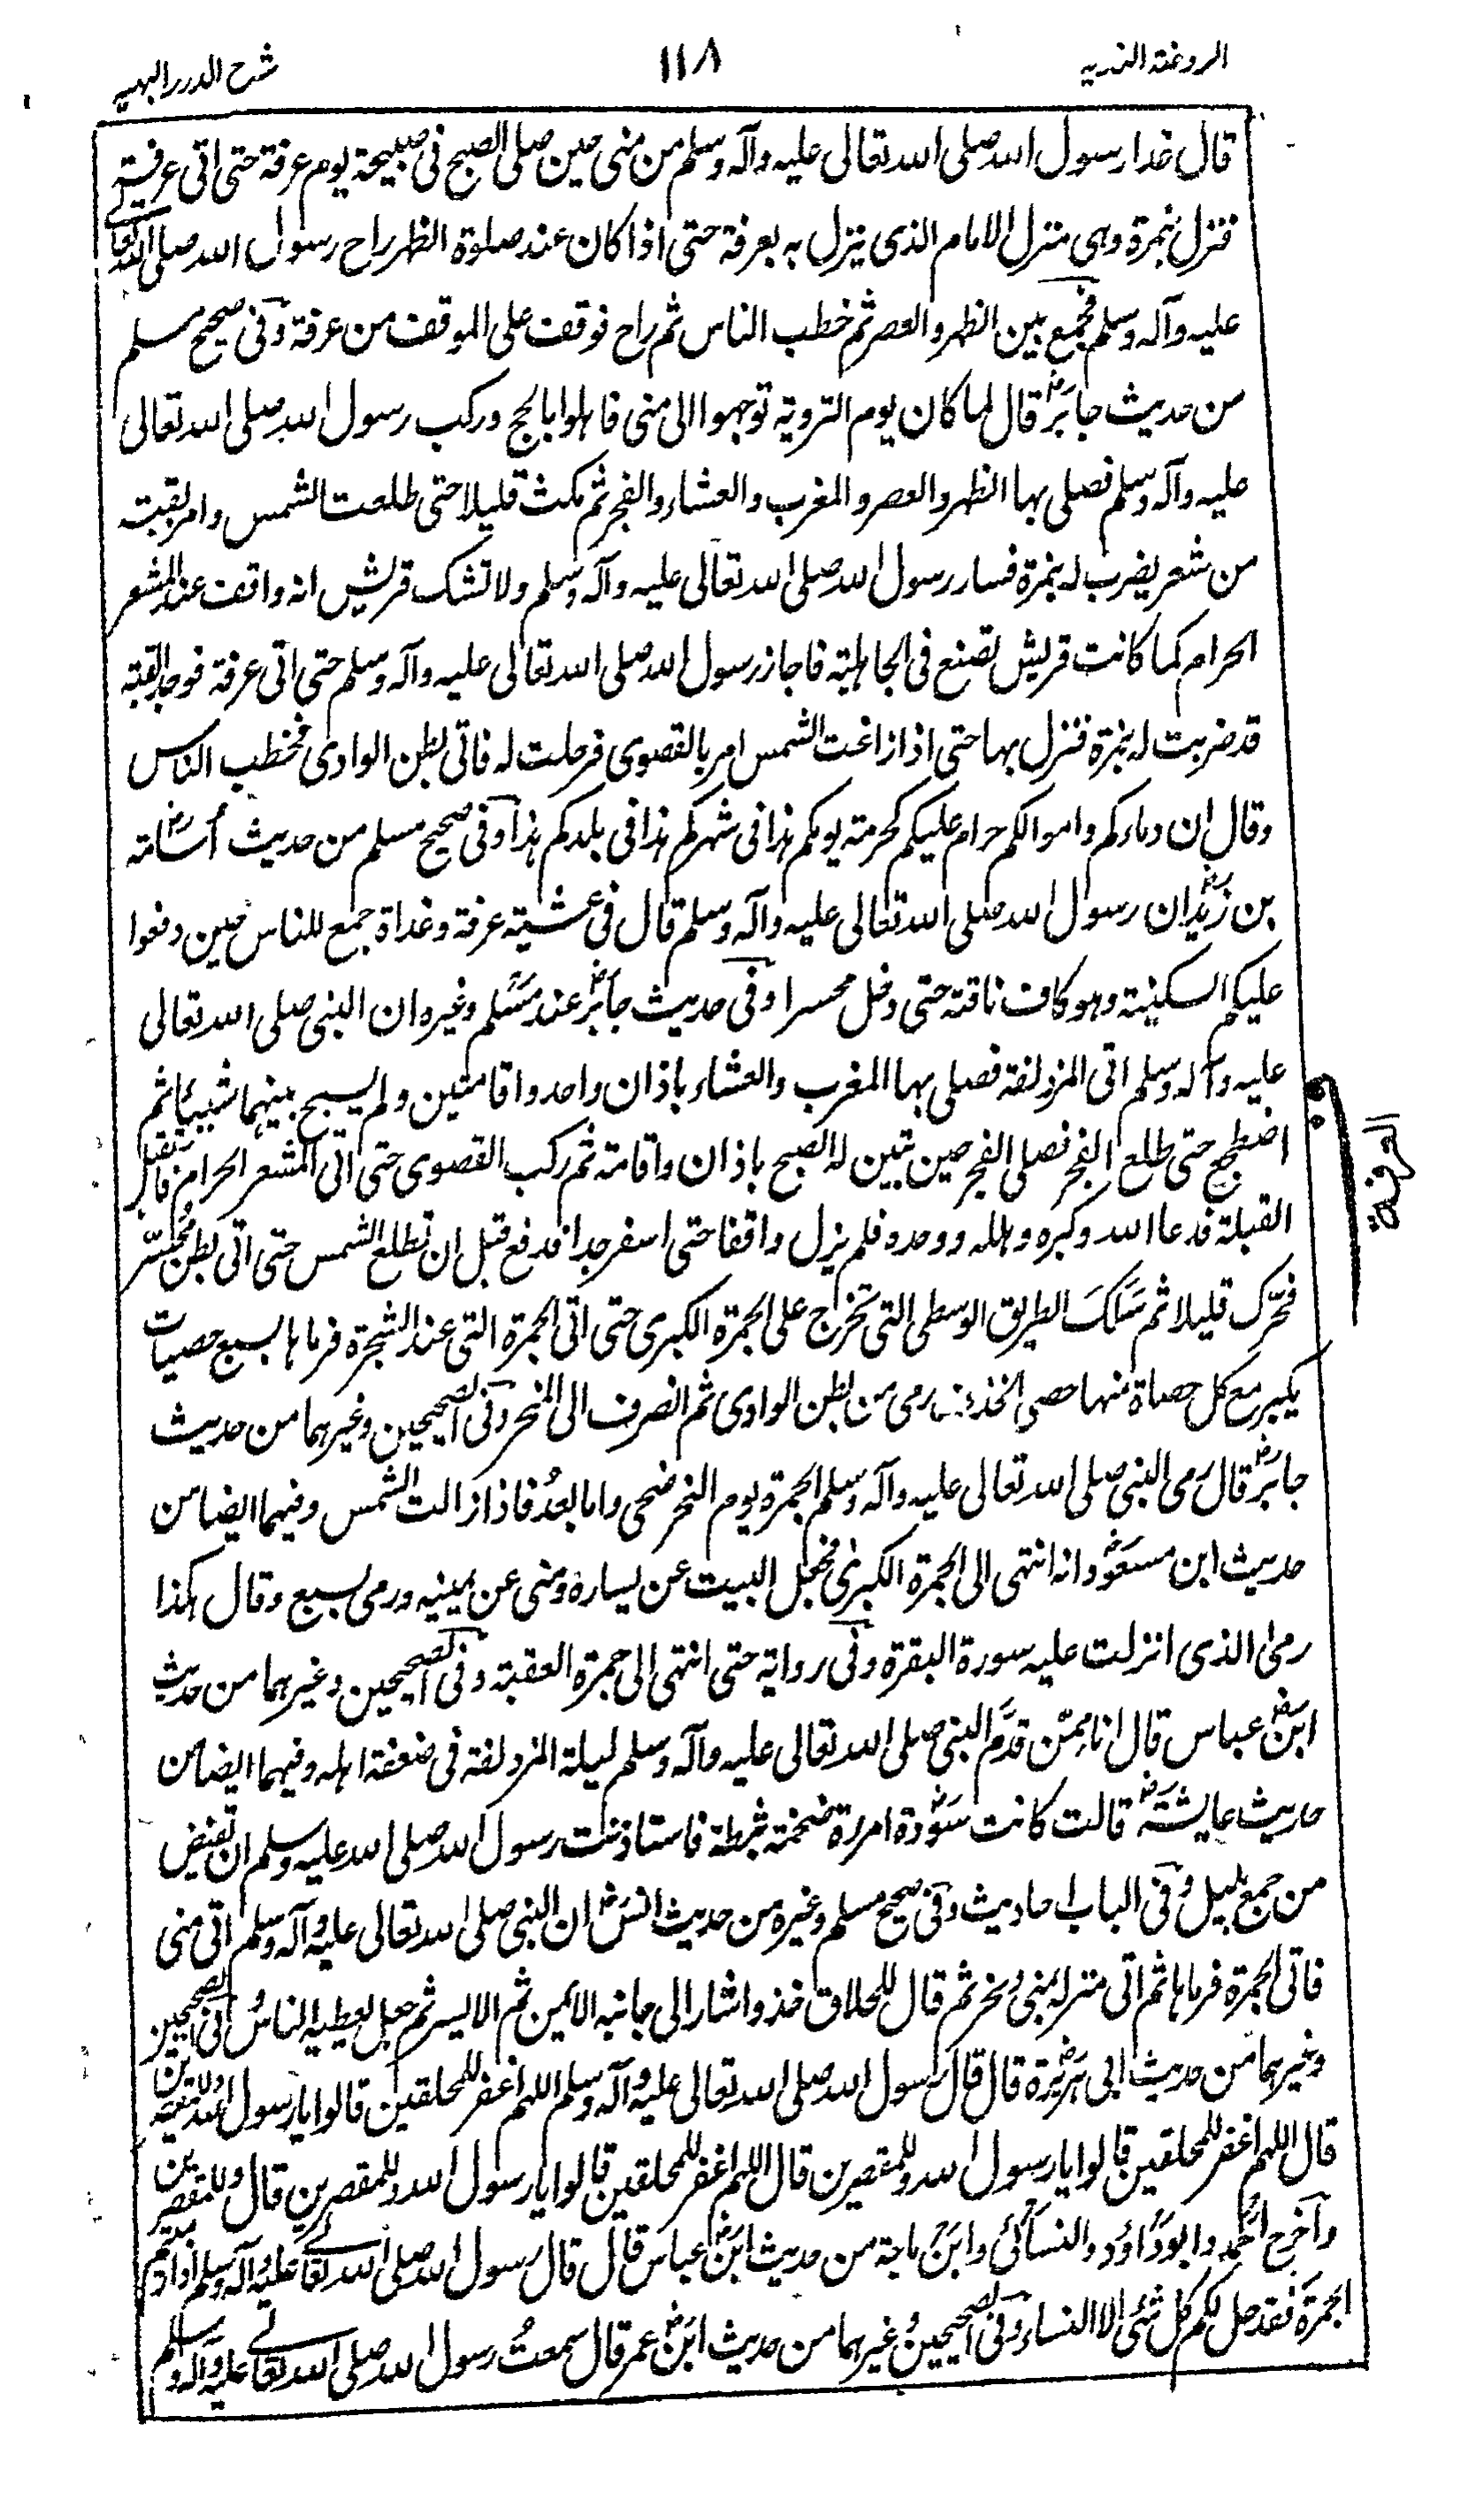 الروضة الندیه
١١٨
شرح الدرر البهیه
قال غدا رسول الله صلی الله تعالی علیه وآله وسلم من منی حین صلی الصبح فی صبیحة یوم عرفة حتی اتی عرفة
فنزل بنمرة وهی منزل الامام الذی ینزل به بعرفة حتی اذا کان عند صلوة الظهر راح رسول الله صلی الله تعالی
علیه وآله وسلم فجمع بین الظهر والعصر ثم خطب الناس ثم راح فوقف علی الموقف من عرفة وفی صحیح مسلم
من حدیث جابرؓ قال لما کان یوم الترویة توجهوا الی منی فاهلوا بالحج ورکب رسول الله صلی الله تعالی
علیه وآله وسلم فصلی بها الظهر والعصر والمغرب والعشاء والفجر ثم مکث قلیلا حتی طلعت الشمس وامر بقبة
من شعر یضرب له بنمرة فسار رسول الله صلی الله تعالی علیه وآله وسلم ولا تشک قریش انه واقف عند المشعر
الحرام کما کانت قریش تصنع فی الجاهلیة فاجاز رسول الله صلی الله تعالی علیه وآله وسلم حتی اتی عرفة فوجد القبة
قد ضربت له بنمرة فنزل بها حتی اذا زاغت الشمس امر بالقصوی فرحلت له فاتی بطن الوادی فخطب الناس
وقال ان دماءکم واموالکم حرام علیکم کحرمة یومکم هذا فی شهرکم هذا فی بلدکم هذا وفی صحیح مسلم من حدیث أسامة
بن زیدؓ ان رسول الله صلی الله تعالی علیه وآله وسلم قال فی عشیة عرفة وغداة جمع للناس حین دفعوا
علیکم السکینة وهو کاف ناقته حتی دخل محسرا وفی حدیث جابرؓ عند مسلم وغیره ان النبی صلی الله تعالی
علیه وآله وسلم اتی المزدلفة فصلی بها المغرب والعشاء باذان واحد واقامتین ولم یسبح بینهما شیئا ثم
اضطجع حتی طلع الفجر فصلی الفجر حین تبین له الصبح باذان واقامة ثم رکب القصوی حتی اتی المشعر الحرام فاستقبل
القبلة فدعا الله وکبره وهلله ووحده فلم یزل واقفا حتی اسفر جدا فدفع قبل ان تطلع الشمس حتی اتی بطن محسّر
فحرّک قلیلا ثم سَلَکَ الطریق الوسطی التی تخرج علی الجمرة الکبری حتی اتی الجمرة التی عند الشجرة فرماها بسبع حصیات
یکبر مع کل حصاة منها حصی الخذف رمی من بطن الوادی ثم انصرف الی المنحر وفی الصحیحین وغیرهما من حدیث
جابرؓ قال رمی النبی صلی الله تعالی علیه وآله وسلم الجمرة یوم النحر ضحی واما بعدُ فاذا زالت الشمس وفیهما ایضا من
حدیث ابن مسعودؓ انه انتهی الی الجمرة الکبریٰ فجعل البیت عن یساره ومنی عن یمینه ورمی بسبع وقال هکذا
رمیٰ الذی انزلت علیه سورة البقرة وفی روایة حتی انتهی الی جمرة العقبة وفی الصحیحین وغیرهما من حدیث
ابن عباس قال انا مِمَّن قدَّم النبی صلی الله تعالی علیه وآله وسلم لیلة المزدلفة فی ضعفة اهله وفیهما ایضا من
حدیث عایشةؓ قالت کانت سودةؓ امرءة ضخمة ثبطة فاستاذنت رسول الله صلی الله علیه وسلم ان تفیض
من جمع بلیل وفی الباب احادیث وفی صحیح مسلم وغیره من حدیث انسؓ ان النبی صلی الله تعالی علیه وآله وسلم اتی منی
فاتی الجمرة فرماها ثم اتی منزله بمنی ونحر ثم قال للحلاق خذ واشار الی جانبه الایمن ثم الایسر ثم جعل یعطیه الناس وفی الصحیحین
وغیرهما من حدیث ابی هریرةؓ قال قال رسول الله صلی الله تعالی علیه وآله وسلم اللهم اغفر للمحلقین قالوا یا رسول الله وللمقصرین
قال اللهم اغفر للمحلقین قالوا یا رسول الله وللمقصرین قال اللهم اغفر للمحلقین قالوا یا رسول الله وللمقصرین قال وللمقصرین
وآخرج احمد وابوداود والنسائی وابن ماجة من حدیث ابن عباسؓ قال قال رسول الله صلی الله تعالی علیه وآله وسلم اذا رمیتم
الجمرة فقد حل لکم کل شئ الا النساء وفی الصحیحین وغیرهما من حدیث ابن عمرؓ قال سمعتُ رسول الله صلی الله تعالی علیه وآله وسلم